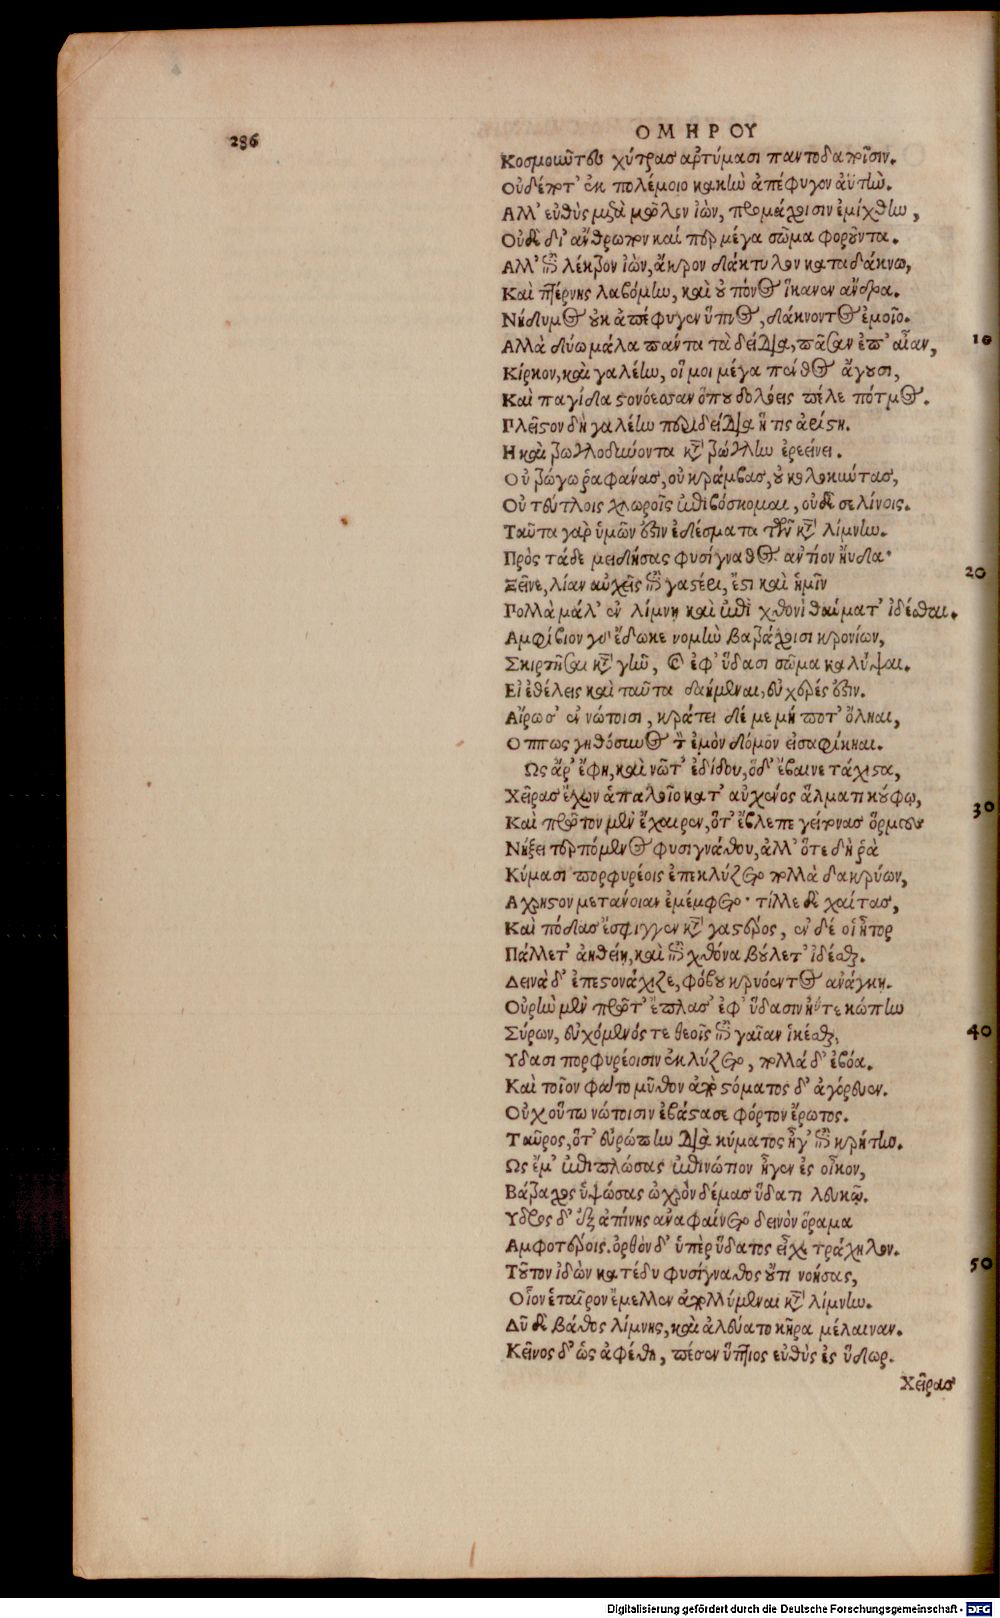 286
ΟΜΗΡΟΥ
Κοσμοῦντες χύτρας ἀρτύμασι παντοδαποῖσιν.
Οὐδέποτ' ἐκ πολέμοιο κακὴν ἀπέφυγον ἀϋτήν.
Αλλ' εὐθὺς μετὰ μῶλον ἰὼν, προμάχοισιν ἐμίχθην,
Οὐ δὲ δι' ἄνθρωπον καί περ μέγα σῶμα φοροῦντα.
Αλλ' ἐπὶ λέκτρον ἰὼν, ἄκρον δάκτυλον καταδάκνω,
Καὶ πτέρνης λαβόμην, καὶ οὐ πόνος ἵκανεν ἄνδρα.
Νήδυμος οὐκ ἀπέφυγεν ὕπνος, δάκνοντος ἐμοῖο.
Αλλὰ δύω μάλα πάντα τὰ δείδια, πᾶσαν ἐπ' αἶαν,
10
Κίρκον, καὶ γαλέην, οἵ μοι μέγα πένθος ἄγουσι,
Καὶ παγίδα στονόεσσαν ὅπου δολόεις πέλε πότμος.
Πλεῖστον δὴ γαλέην περιδείδια ἥ τις ἀρίστη.
Η καὶ τρωγλοδύνοντα κατὰ τρώγλην ἐρεείνει.
Οὐ τρώγω ῥαφάνας, οὐ κράμβας, οὐ κολοκύντας,
Οὐ τεύτλοις χλωροῖς ἐπιβόσκομαι, οὐδὲ σελίνοις.
Ταῦτα γὰρ ὑμῶν ἐστιν ἐδέσματα τῶν κατὰ λίμνην.
Πρὸς τάδε μειδήσας φυσίγναθος ἀντίον ηὔδα·
Ξεῖνε, λίαν αὐχεῖς ἐπὶ γαστέρι, ἔστι καὶ ἡμῖν
20
Πολλὰ μάλ' ἐν λίμνῃ καὶ ἐπὶ χθονὶ θαύματ' ἰδέσθαι.
Αμφίβιον γὰρ ἔδωκε νομὴν βατράχοισι κρονίων,
Σκιρτῆσαι κατὰ γῆν, καὶ ἐφ' ὕδασι σῶμα καλύψαι.
Εἰ ἐθέλεις καὶ ταῦτα δαήμεναι, εὐχερές ἐστιν.
Αἴρω σ' ἐν νώτοισι, κράτει δέ με μή ποτ' ὄληαι,
Οππως γηθόσυνος τὸν ἐμὸν δόμον εἰσαφίκηαι.
Ως ἄρ' ἔφη, καὶ νῶτ' ἐδίδου, ὁ δ' ἔβαινε τάχιστα,
Χεῖρας ἔχων ἁπαλοῖο κατ' αὐχένος ἅλματι κούφῳ,
30
Καὶ πρῶτον μὲν ἔχαιρεν, ὅτ' ἔβλεπε γείτονας ὅρμους
Νήξει τερπόμενος φυσιγνάθου, ἀλλ' ὅτε δή ῥὰ
Κύμασι πορφυρέοις ἐπεκλύζετο πολλὰ δακρύων,
Αχρηστον μετάνοιαν ἐμέμφετο· τίλλε δὲ χαίτας,
Καὶ πόδας ἔσφιγγεν κατὰ γαστέρος, ἐν δέ οἱ ἦτορ
Πάλλετ' ἀηθείῃ, καὶ ἐπὶ χθόνα βούλετ' ἰδέσθαι.
Δεινὰ δ' ἐπεστονάχιζε, φόβου κρυόεντος ἀνάγκη.
Οὐρὴν μὲν πρῶτ' ἔπλασ' ἐφ' ὕδασιν ἠΰτε κώπην
Σύρων, εὐχόμενός τε θεοῖς ἐπὶ γαῖαν ἱκέσθαι,
40
Υδασι πορφυρέοισιν ἐκλύζετο, πολλὰ δ' ἐβόα.
Καὶ τοῖον φάτο μῦθον ἀπὸ στόματος δ' ἀγόρευεν.
Οὐχ οὕτω νώτοισιν ἐβάστασε φόρτον ἔρωτος.
Ταῦρος, ὅτ' εὐρώπην διὰ κύματος ἦγ' ἐπὶ κρήτην.
Ως ἔμ' ἐπιπλώσας ἐπινώτιον ἦγεν ἐς οἶκον,
Βάτραχος ὑψώσας ὠχρὸν δέμας ὕδατι λευκῷ.
Υδρος δ' ἐξαπίνης ἀναφαίνετο δεινὸν ὅραμα
Αμφοτέροις. ὀρθὸν δ' ὑπὲρ ὕδατος εἶχε τράχηλον.
50
Τοῦτον ἰδὼν κατέδυ φυσίγναθος οὔτι νοήσας,
Οἷον ἑταῖρον ἔμελλεν ἀπολλύμεναι κατὰ λίμνην.
Δῦ δὲ βάθος λίμνης, καὶ ἀλεύατο κῆρα μέλαιναν.
Κεῖνος δ' ὡς ἀφέθη, πέσεν ὕπτιος εὐθὺς ἐς ὕδωρ.
Χεῖρας
Digitalisierung gefördert durch die Deutsche Forschungsgemeinschaft - DFG